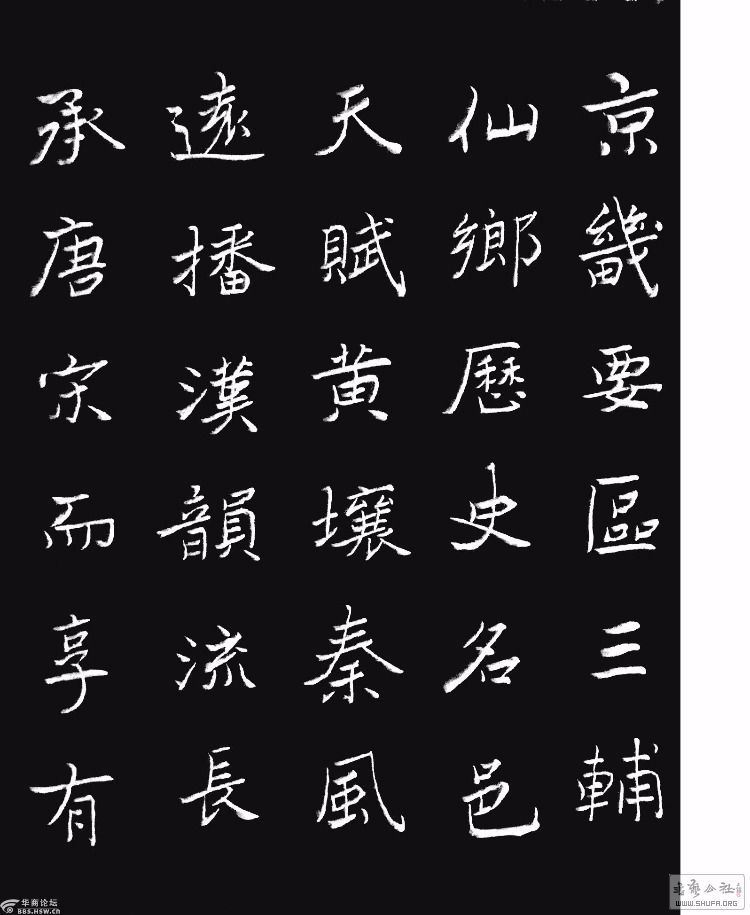 京畿要區三輔
仙鄉歷史名邑
天賦黃壤秦風
遠播漢韻流長
承唐宋而享有
华商论坛
BBS.HSW.CN
WWW.SHUFA.ORG